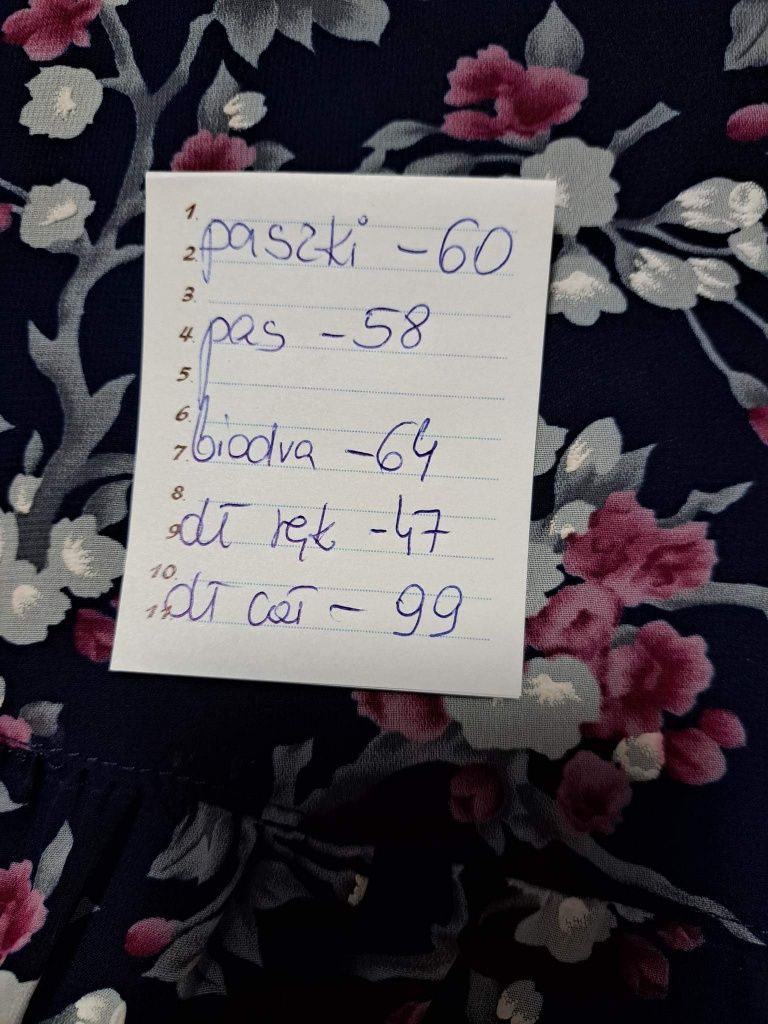 1.
paszki - 60
2.
3.
pas - 58
4.
5.
6.
biodra - 64
7.
8.
dł ręk - 47
9.
10.
dł cał - 99
11.